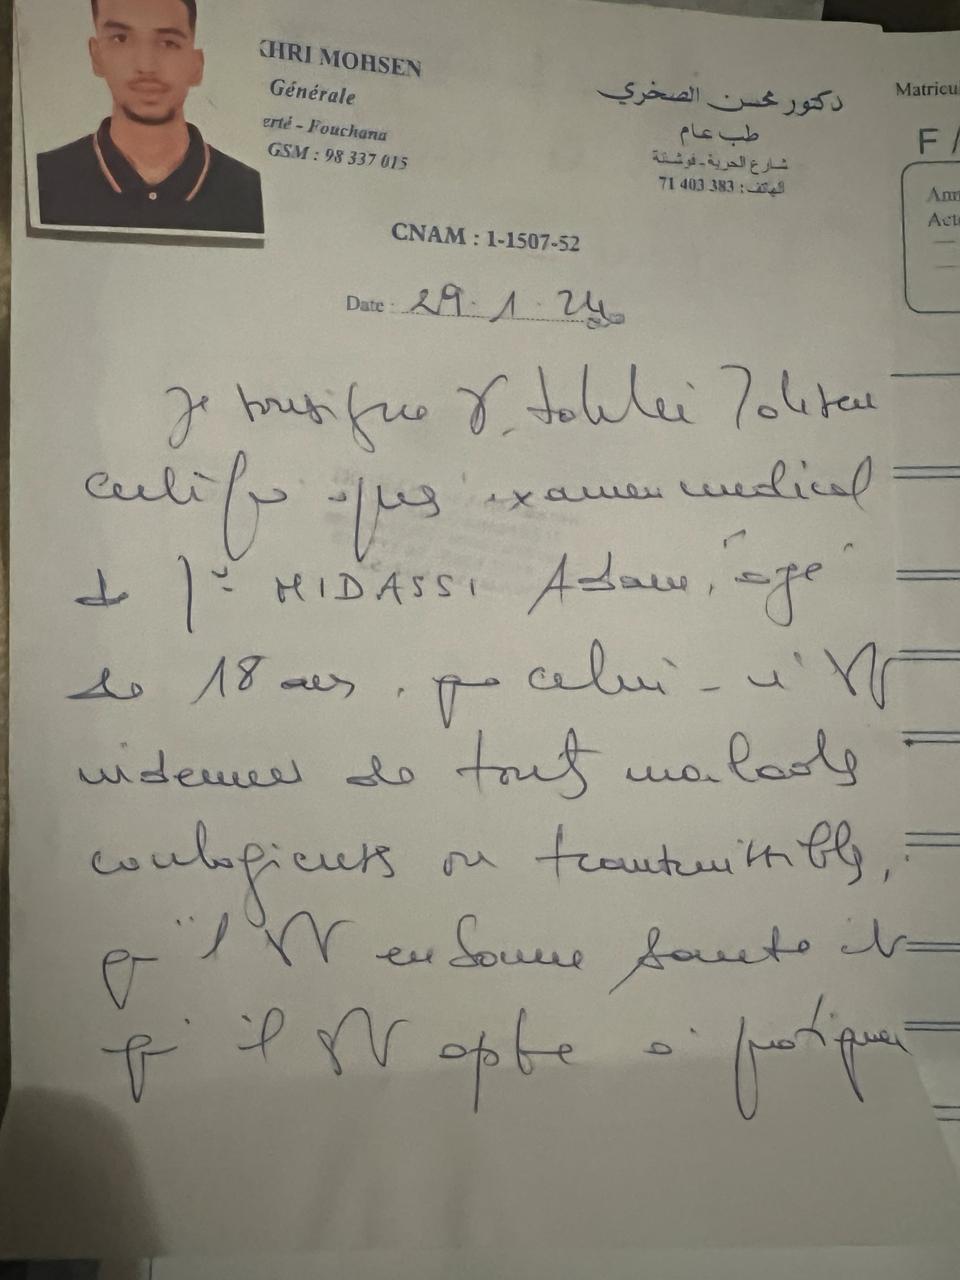 KHRI MOHSEN
Générale
erté - Fouchana
GSM : 98 337 015
دكتور محسن الصخري
طب عام
شارع الحرية - فوشانة
الهاتف : 71 403 383
CNAM : 1-1507-52
Date : 29 . 1 . 24
Matricu
F /
Ann
Act
Je soussigné Dr
certifie après examen medical
de MIDASSI Adam, âgé
de 18 ans, que celui-ci est
indemne de tout maladie
contagieuse ou transmissible,
qu'il est en bonne santé et
qu'il est apte à pratiquer